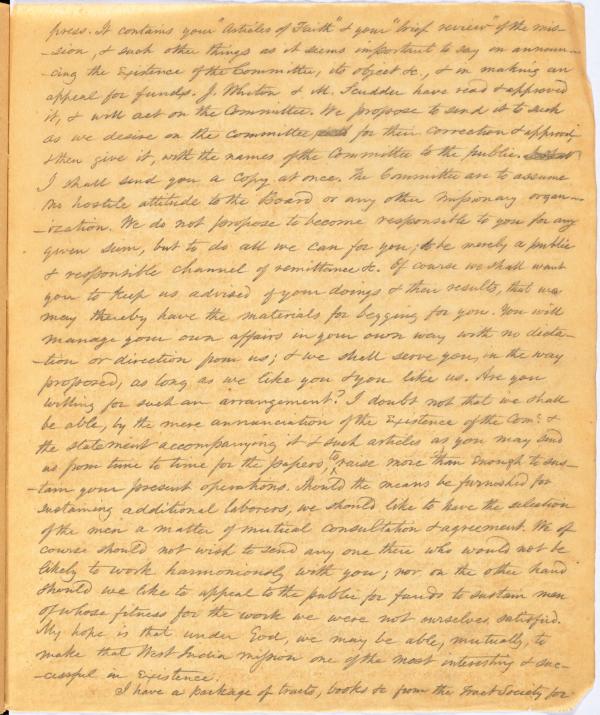 press. It contains your "Articles of Faith" & your "brief review" of the mis-
-sion, & such other things as it seems important to say in announ-
-cing the existence of the Committee, its object &c., & in making an
appeal for funds. J. Whiton & M. Scudder have read & approved
it, & will act on the Committee. We propose to send it to such
as we desire on the committee for their correction & approval,
& then give it, with the names of the Committee to the public.
I shall send you a copy at once. The Committee are to assume
no hostile attitude to the Board or any other missionary organ-
-ization. We do not propose to become responsible to you for any
given sum, but to do all we can for you; to be merely a public
& responsible channel of remittance &c. Of course we shall want
you to keep us advised of your doings & their results, that we
may thereby have the materials for begging for you. You will
manage your own affairs in your own way with no dicta-
-tion or direction from us; & we shall serve you, in the way
proposed, as long as we like you & you like us. Are you
willing for such an arrangement? I doubt not that we shall
be able, by the mere annunciation of the existence of the Com. &
the statement accompanying it & such articles as you may send
us from time to time for the papers, to raise more than enough to sus-
-tain your present operations. Should the means be furnished for
sustaining additional laborers, we should like to have the selection
of the men a matter of mutual consultation & agreement. We of
course should not wish to send any one there who would not be
likely to work harmoniously with you; nor on the other hand
should we like to appeal to the public for funds to sustain men
of whose fitness for the work we were not ourselves satisfied.
My hope is that under God, we may be able, mutually, to
make that West India mission one of the most interesting & suc-
-cessful in existence.
I have a package of tracts, books &c from the Tract Society for